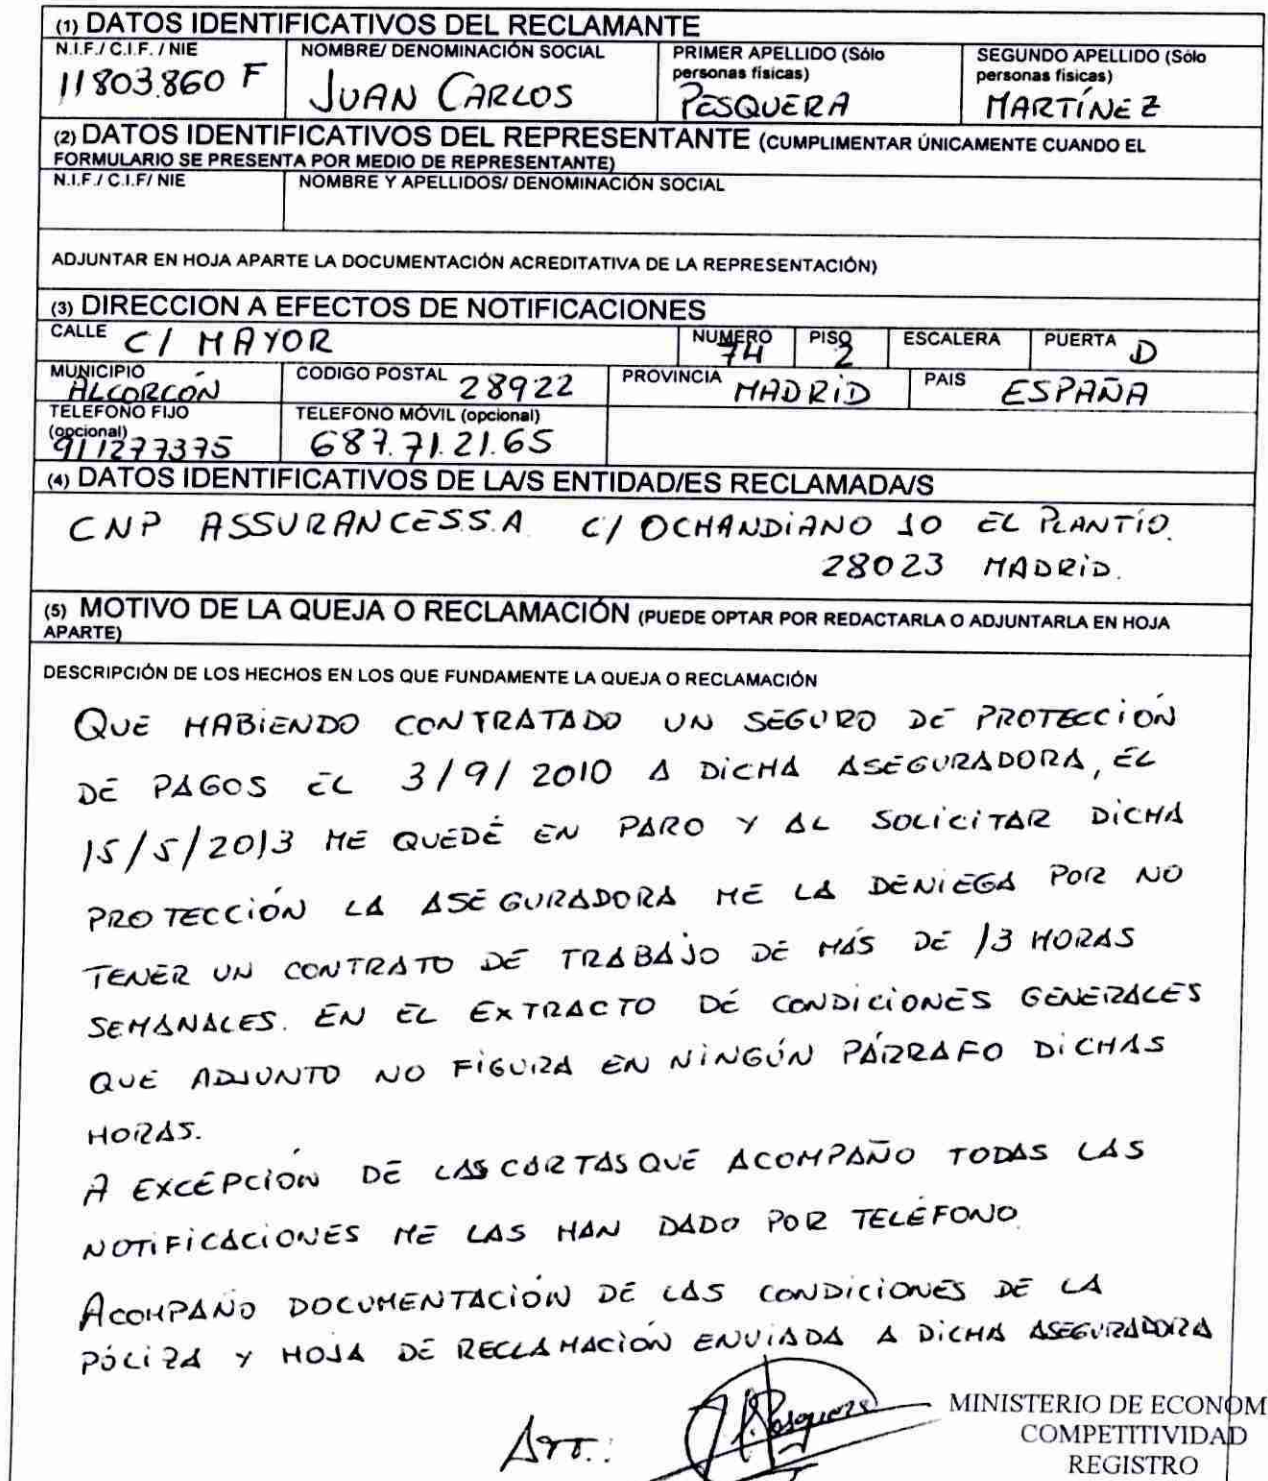 (1) DATOS IDENTIFICATIVOS DEL RECLAMANTE
N.I.F./ C.I.F. / NIE NOMBRE/ DENOMINACIÓN SOCIAL PRIMER APELLIDO (Sólo personas físicas) SEGUNDO APELLIDO (Sólo personas físicas)
11803.860 F JUAN CARLOS PESQUERA MARTÍNEZ
(2) DATOS IDENTIFICATIVOS DEL REPRESENTANTE (CUMPLIMENTAR ÚNICAMENTE CUANDO EL
FORMULARIO SE PRESENTA POR MEDIO DE REPRESENTANTE)
N.I.F./ C.I.F/ NIE NOMBRE Y APELLIDOS/ DENOMINACIÓN SOCIAL
ADJUNTAR EN HOJA APARTE LA DOCUMENTACIÓN ACREDITATIVA DE LA REPRESENTACIÓN)
(3) DIRECCION A EFECTOS DE NOTIFICACIONES
CALLE C/ MAYOR NUMERO 74 PISO 2 ESCALERA PUERTA D
MUNICIPIO ALCORCÓN CODIGO POSTAL 28922 PROVINCIA MADRID PAIS ESPAÑA
TELEFONO FIJO (opcional) 911277375 TELEFONO MÓVIL (opcional) 687.71.21.65
(4) DATOS IDENTIFICATIVOS DE LA/S ENTIDAD/ES RECLAMADA/S
CNP ASSURANCES S.A. C/ OCHANDIANO 10 EL PLANTÍO.
28023 MADRID.
(5) MOTIVO DE LA QUEJA O RECLAMACIÓN (PUEDE OPTAR POR REDACTARLA O ADJUNTARLA EN HOJA
APARTE)
DESCRIPCIÓN DE LOS HECHOS EN LOS QUE FUNDAMENTE LA QUEJA O RECLAMACIÓN
QUE HABIENDO CONTRATADO UN SEGURO DE PROTECCIÓN
DE PAGOS EL 3/9/2010 A DICHA ASEGURADORA, EL
15/5/2013 ME QUEDÉ EN PARO Y AL SOLICITAR DICHA
PROTECCIÓN LA ASEGURADORA ME LA DENIEGA POR NO
TENER UN CONTRATO DE TRABAJO DE MÁS DE 13 HORAS
SEMANALES. EN EL EXTRACTO DE CONDICIONES GENERALES
QUE ADJUNTO NO FIGURA EN NINGÚN PÁRRAFO DICHAS
HORAS.
A EXCEPCIÓN DE LAS CARTAS QUE ACOMPAÑO TODAS LAS
NOTIFICACIONES ME LAS HAN DADO POR TELÉFONO.
ACOMPAÑO DOCUMENTACIÓN DE LAS CONDICIONES DE LA
PÓLIZA Y HOJA DE RECLAMACIÓN ENVIADA A DICHA ASEGURADORA
Att.: Pesquera
MINISTERIO DE ECONOM
COMPETITIVIDAD
REGISTRO